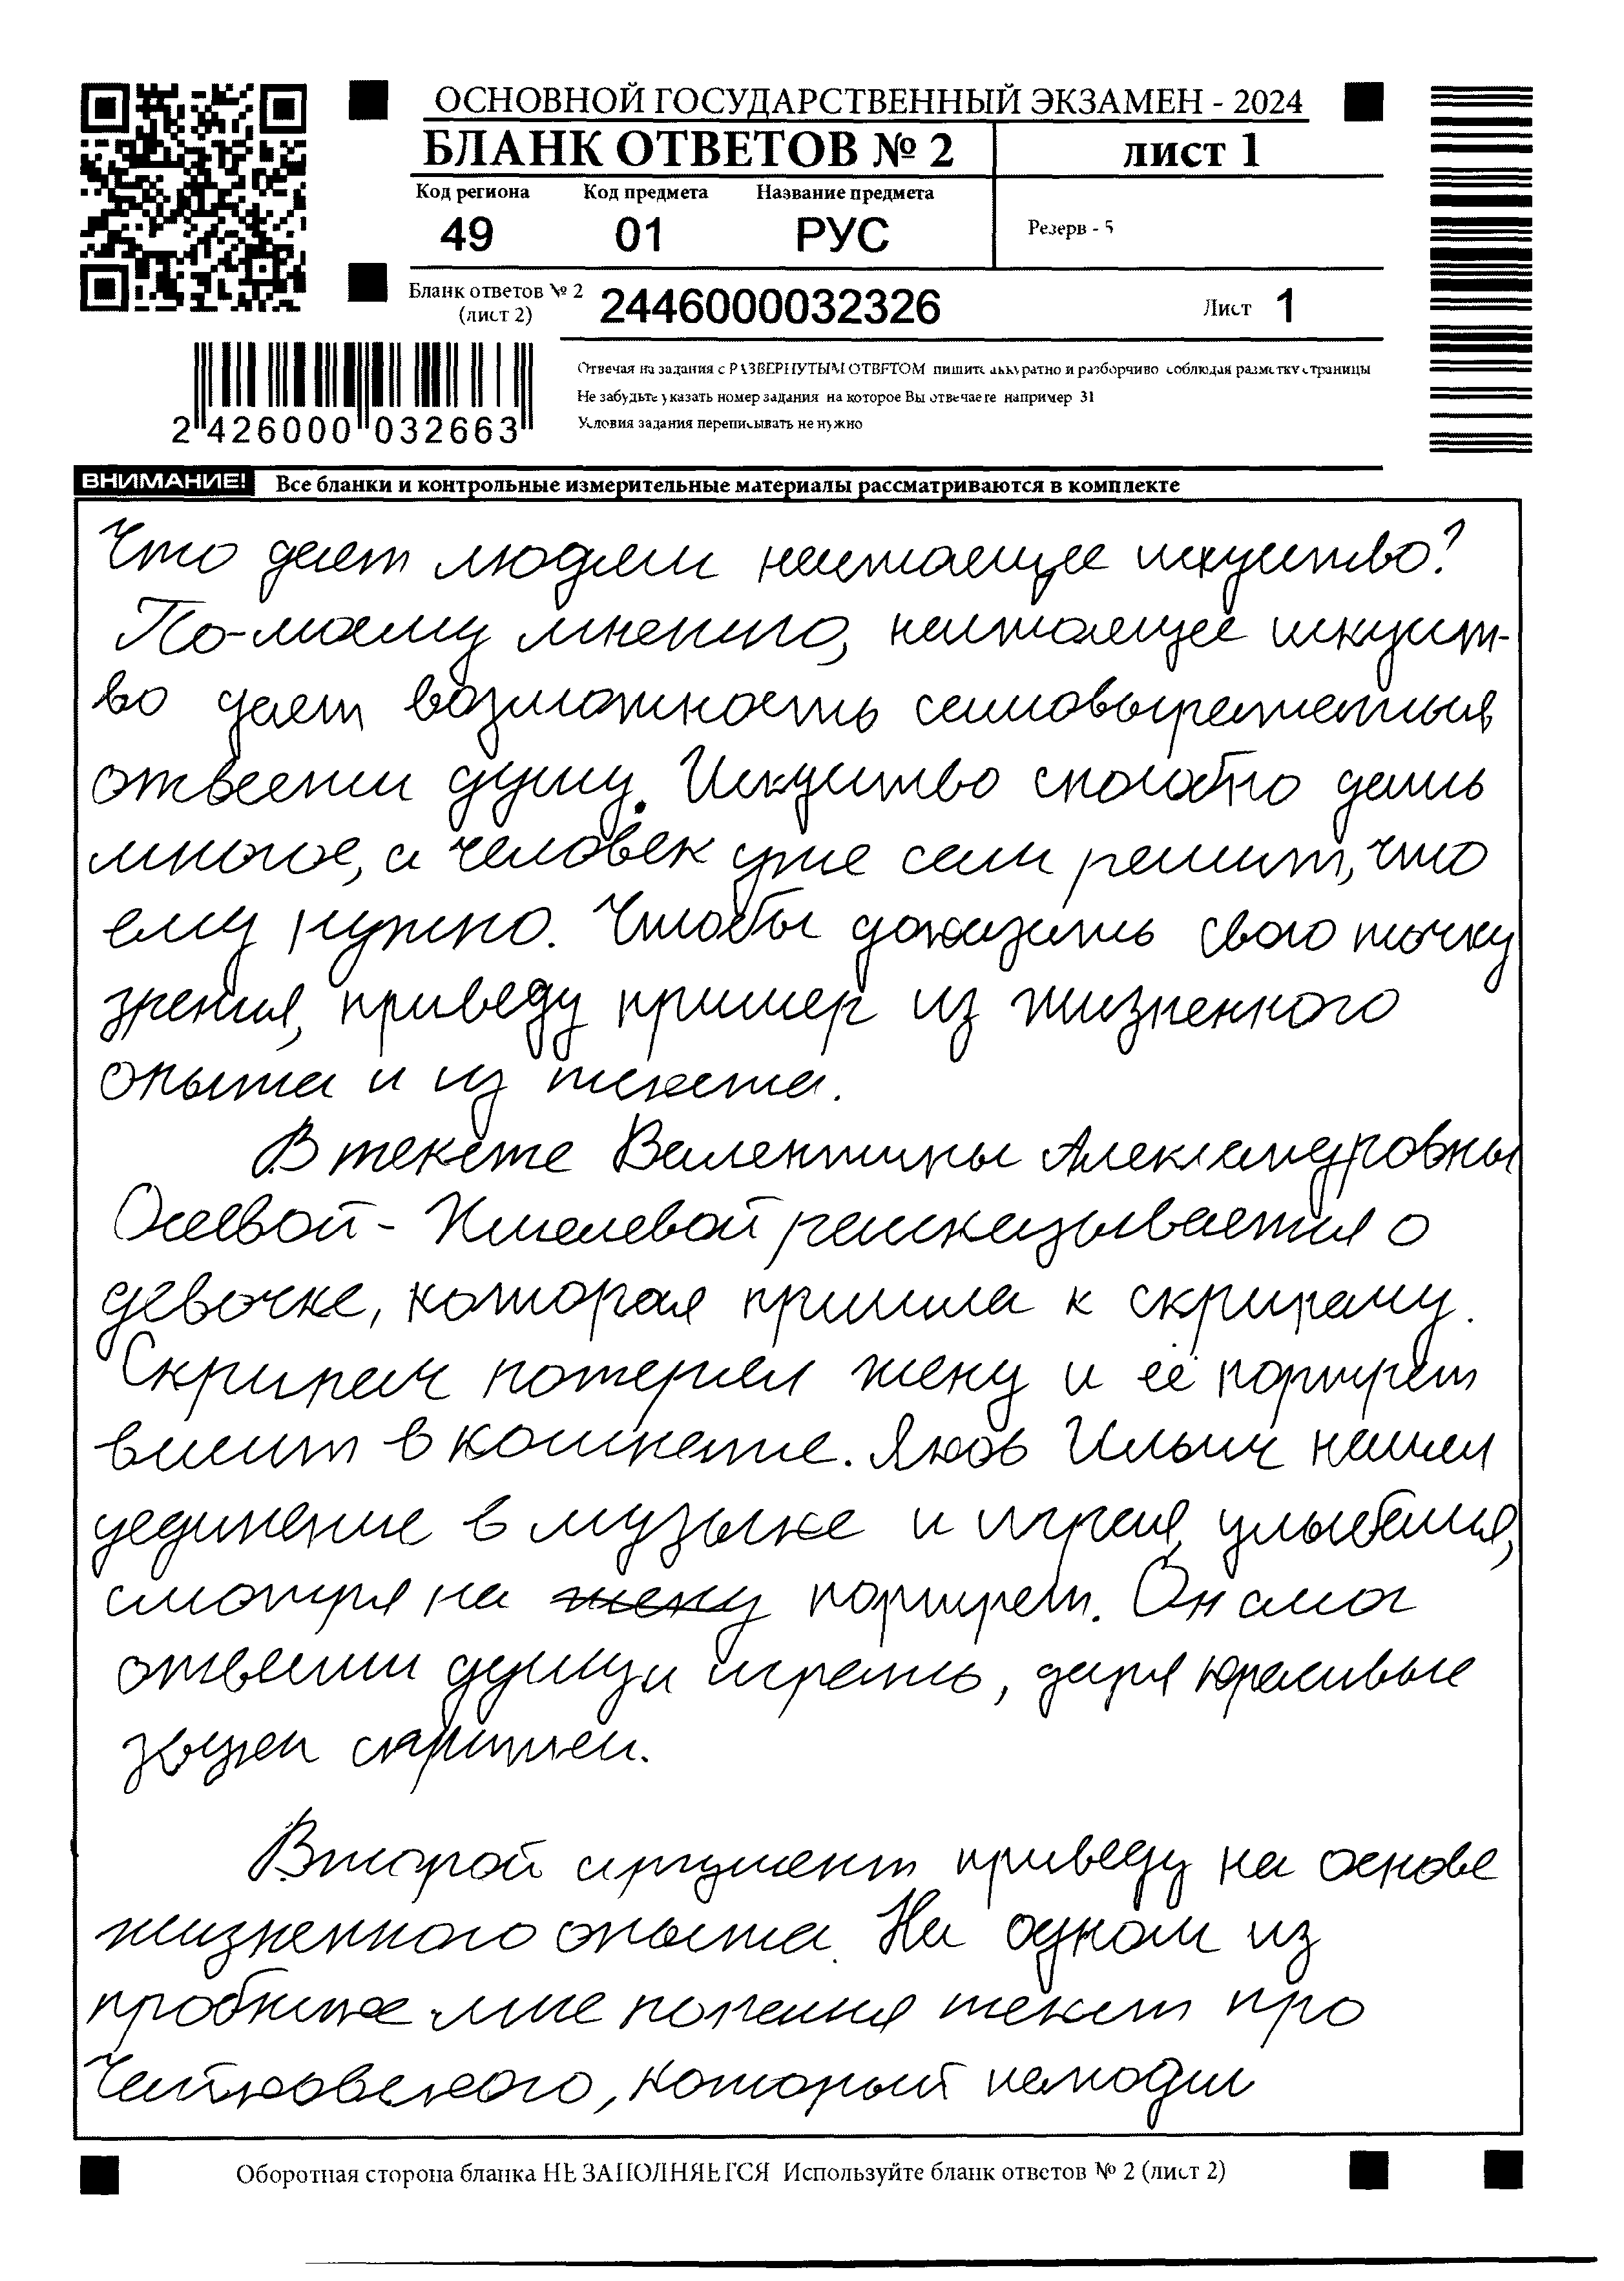 ОСНОВНОЙ ГОСУДАРСТВЕННЫЙ ЭКЗАМЕН - 2024
БЛАНК ОТВЕТОВ № 2
лист 1
Код региона Код предмета Название предмета
49 01 РУС
Резерв - 5
Бланк ответов № 2
(лист 2)
2446000032326
Лист 1
2 426000 032663
Отвечая на задания с РАЗВЕРНУТЫМ ОТВЕТОМ пишите аккуратно и разборчиво соблюдая разметку страницы
Не забудьте указать номер задания на которое Вы отвечаете например 31
Условия задания переписывать не нужно
ВНИМАНИЕ! Все бланки и контрольные измерительные материалы рассматриваются в комплекте
Что дает людям настоящее искуство?
По-моему мнению, настоящее искуст-
во дает возможность самовыражения
отвести душу. Искуство способно дать
многое, а человек уже сам решит, что
ему нужно. Чтобы доказать свою точку
зрения, приведу пример из жизненного
опыта и из текста.
В тексте Валентины Александровны
Осеевой - Хмелевой рассказывается о
девочке, которая пришла к скрипачу.
Скрипач потерял жену и её портрет
висит в комнате. Яков Ильич нашел
уединение в музыке и играя, улыбался,
смотря на жену портрет. Он смог
отвести душу и играть, даря красивые
звуки скрипки.
Второй аргумент приведу на основе
жизненного опыта. На одном из
пробников мне попался текст про
Чайковского, который находил
Оборотная сторона бланка НЕ ЗАПОЛНЯЕТСЯ Используйте бланк ответов № 2 (лист 2)